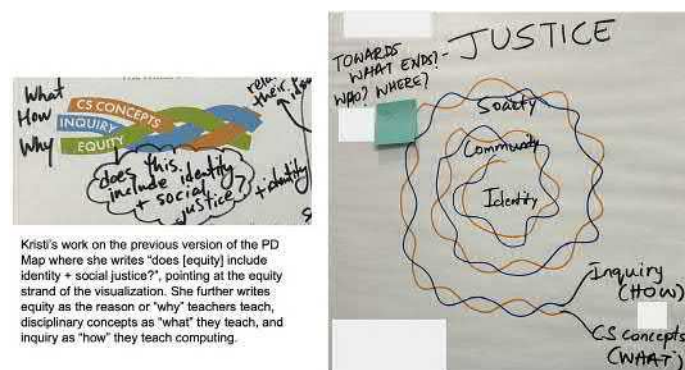 What
How
Why
CS CONCEPTS
INQUIRY
EQUITY
their
does this
include identity
+ social
justice?
+ identity
Kristi's work on the previous version of the PD
Map where she writes "does [equity] include
identity + social justice?", pointing at the equity
strand of the visualization. She further writes
equity as the reason or "why" teachers teach,
disciplinary concepts as "what" they teach, and
inquiry as "how" they teach computing.
TOWARDS
WHAT ENDS?-
WHO? WHERE?
JUSTICE
Society
Community
Identity
Inquiry
(HOW)
CS concepts
(WHAT)